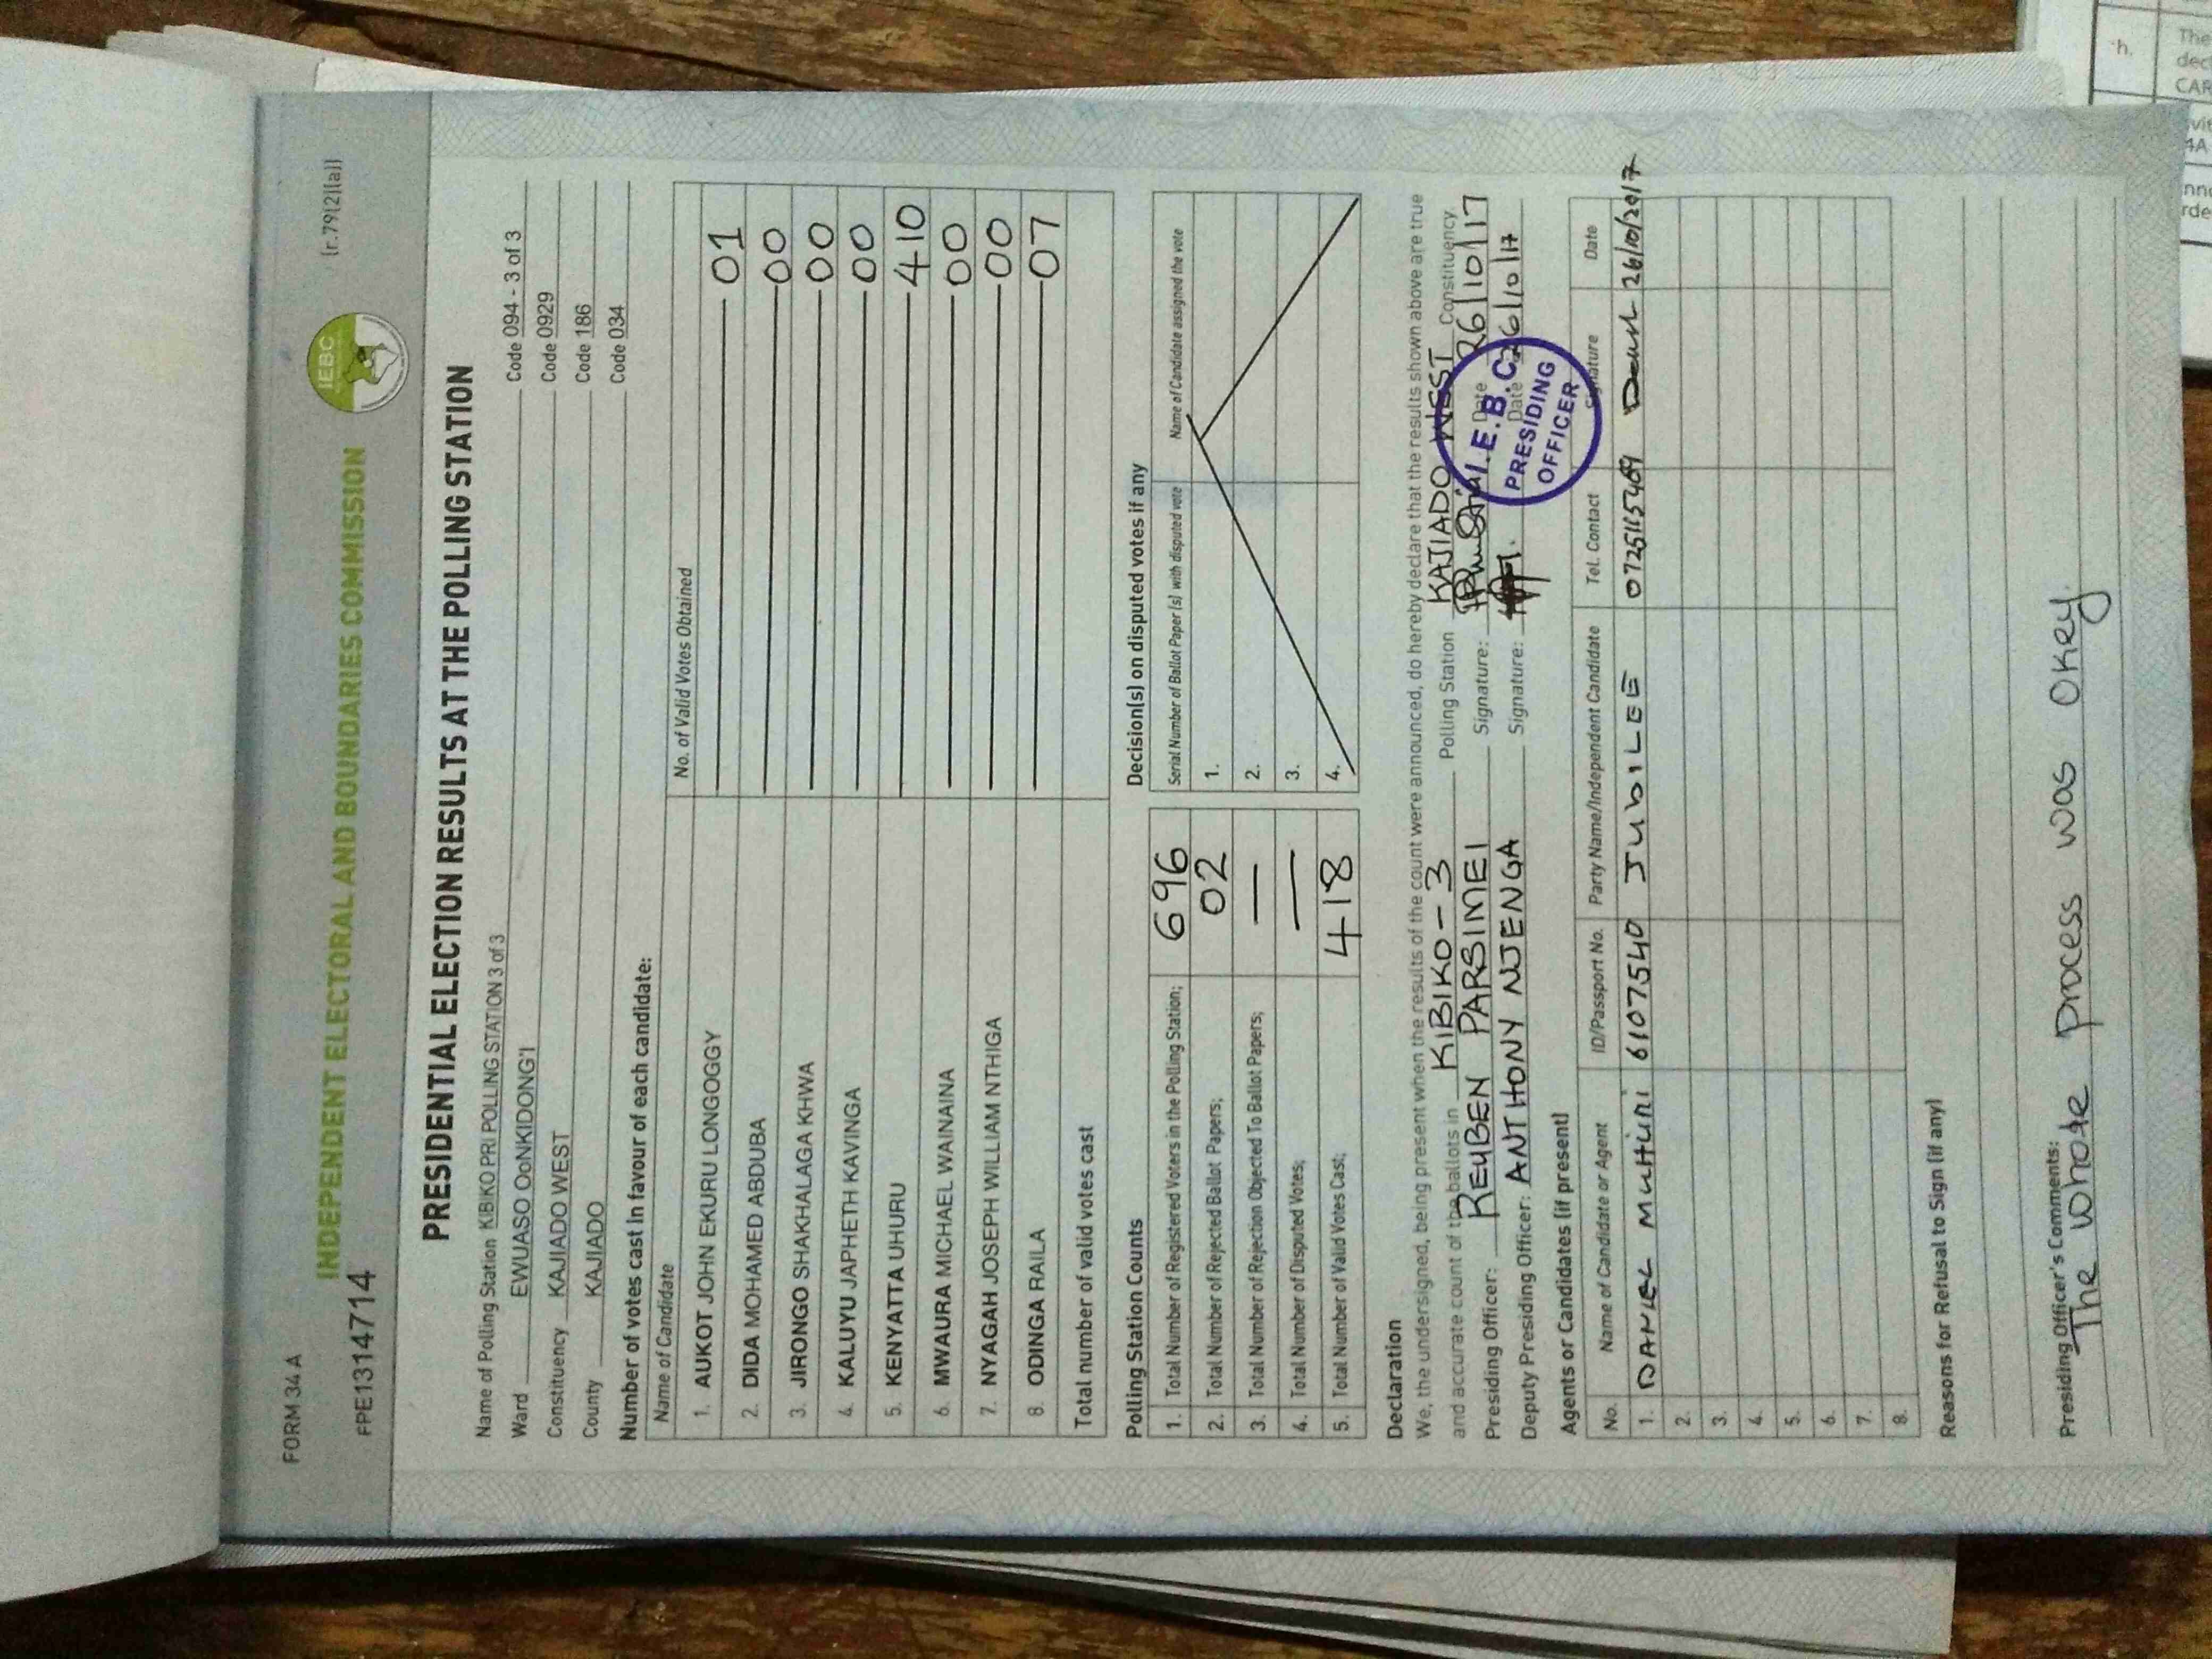 FORM 34 A
(r.79(2)(a))
INDEPENDENT ELECTORAL AND BOUNDARIES COMMISSION
IEBC
FPE1314714
PRESIDENTIAL ELECTION RESULTS AT THE POLLING STATION
Name of Polling Station KIBIKO PRI POLLING STATION 3 of 3 Code 094 - 3 of 3
Ward EWUASO OoNKIDONG'I Code 0929
Constituency KAJIADO WEST Code 186
County KAJIADO Code 034
Number of votes cast in favour of each candidate:
Name of Candidate No. of Valid Votes Obtained
1. AUKOT JOHN EKURU LONGOGGY 01
2. DIDA MOHAMED ABDUBA 00
3. JIRONGO SHAKHALAGA KHWA 00
4. KALUYU JAPHETH KAVINGA 00
5. KENYATTA UHURU 410
6. MWAURA MICHAEL WAINAINA 00
7. NYAGAH JOSEPH WILLIAM NTHIGA 00
8. ODINGA RAILA 07
Total number of valid votes cast
Polling Station Counts
1. Total Number of Registered Voters in the Polling Station; 696
2. Total Number of Rejected Ballot Papers; 02
3. Total Number of Rejection Objected To Ballot Papers; —
4. Total Number of Disputed Votes; —
5. Total Number of Valid Votes Cast; 418
Decision(s) on disputed votes if any
Serial Number of Ballot Paper (s) with disputed vote Name of Candidate assigned the vote
1.
2.
3.
4.
Declaration
We, the undersigned, being present when the results of the count were announced, do hereby declare that the results shown above are true
and accurate count of the ballots in KIBIKO-3 Polling Station KAJIADO WEST Constituency.
Presiding Officer: REUBEN PARSIMEI Signature: Date 26/10/17
Deputy Presiding Officer: ANTHONY NJENGA Signature: Date 26/10/17
I.E.B.C.
PRESIDING
OFFICER
Agents or Candidates (if present)
No. Name of Candidate or Agent ID/Passport No. Party Name/Independent Candidate Tel. Contact Signature Date
1. DANIEL MUTHURI 6107540 JUBILEE 26/10/2017
2.
3.
4.
5.
6.
7.
8.
Reasons for Refusal to Sign (if any)
Presiding Officer's Comments:
The whole process was Okey.
h. The